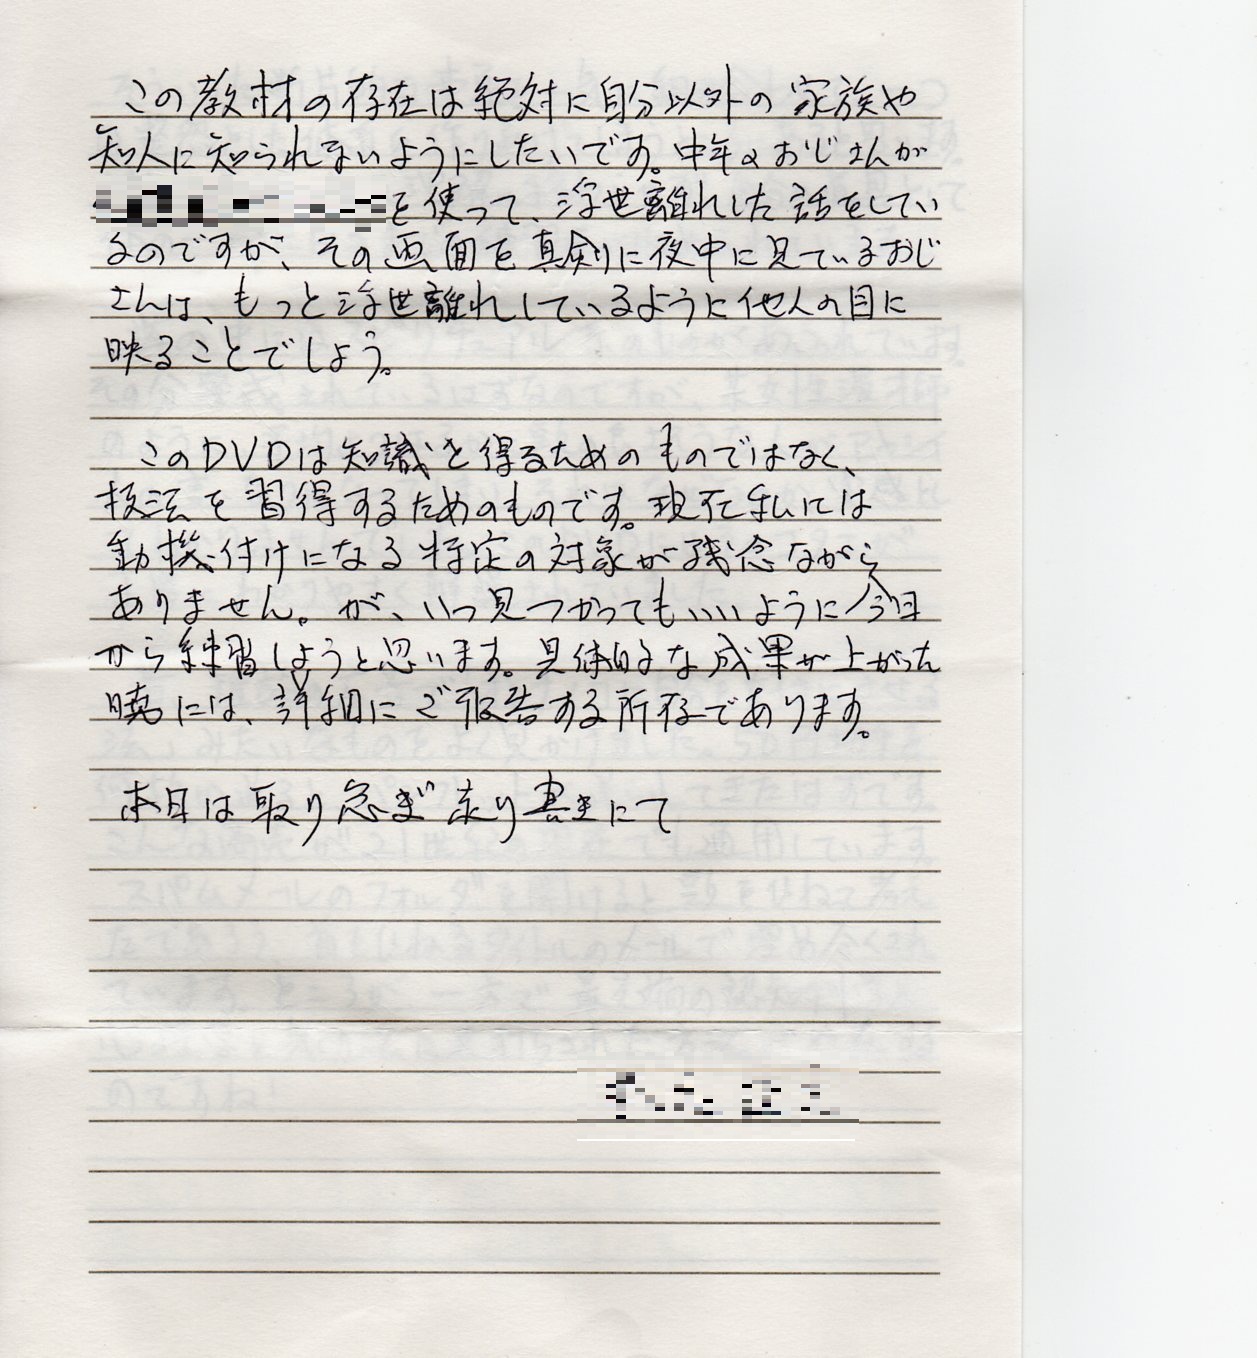 この教材の存在は絶対に自分以外の家族や
知人に知られないようにしたいです。中年のおじさんが
を使って、浮世離れした話をしてい
るのですが、その画面を真剣に夜中に見ているおじ
さんは、もっと浮世離れしているように他人の目に
映ることでしょう。
このDVDは知識を得るためのものではなく、
技法を習得するためのものです。現在私には
動機付けになる特定の対象が残念ながら
ありません。が、いつ見つかってもいいように今日
から練習しようと思います。具体的な成果が上がった
暁には、詳細にご報告する所存であります。
本日は取り急ぎ走り書きにて